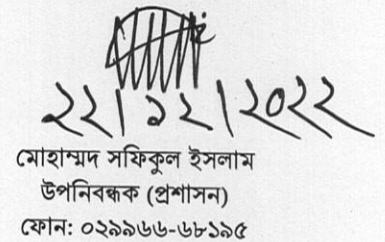 ২২।১২।২০২২
মোহাম্মদ সফিকুল ইসলাম
উপনিবন্ধক (প্রশাসন)
ফোন: ০২৯৯৬৬-৬৮১৯৫